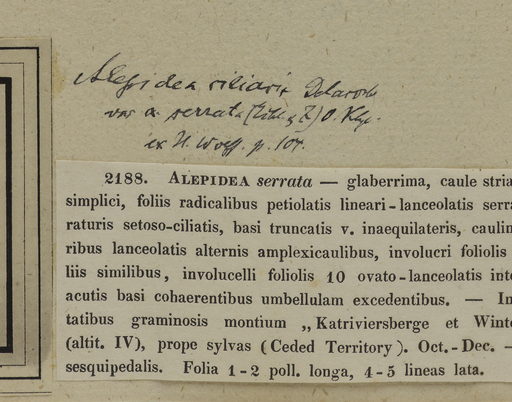 Alepidea ciliaris Delaroch
var α. serrata (Eckl. & Z.) O. Ktze.
ex H. Wolff. p. 104.
2188. ALEPIDEA serrata — glaberrima, caule stria
simplici, foliis radicalibus petiolatis lineari-lanceolatis serra
raturis setoso-ciliatis, basi truncatis v. inaequilateris, caulin
ribus lanceolatis alternis amplexicaulibus, involucri foliolis
liis similibus, involucelli foliolis 10 ovato-lanceolatis inte
acutis basi cohaerentibus umbellulam excedentibus. — In
tatibus graminosis montium „Katriviersberge et Winte
(altit. IV), prope sylvas (Ceded Territory). Oct.-Dec. —
sesquipedalis. Folia 1-2 poll. longa, 4-5 lineas lata.